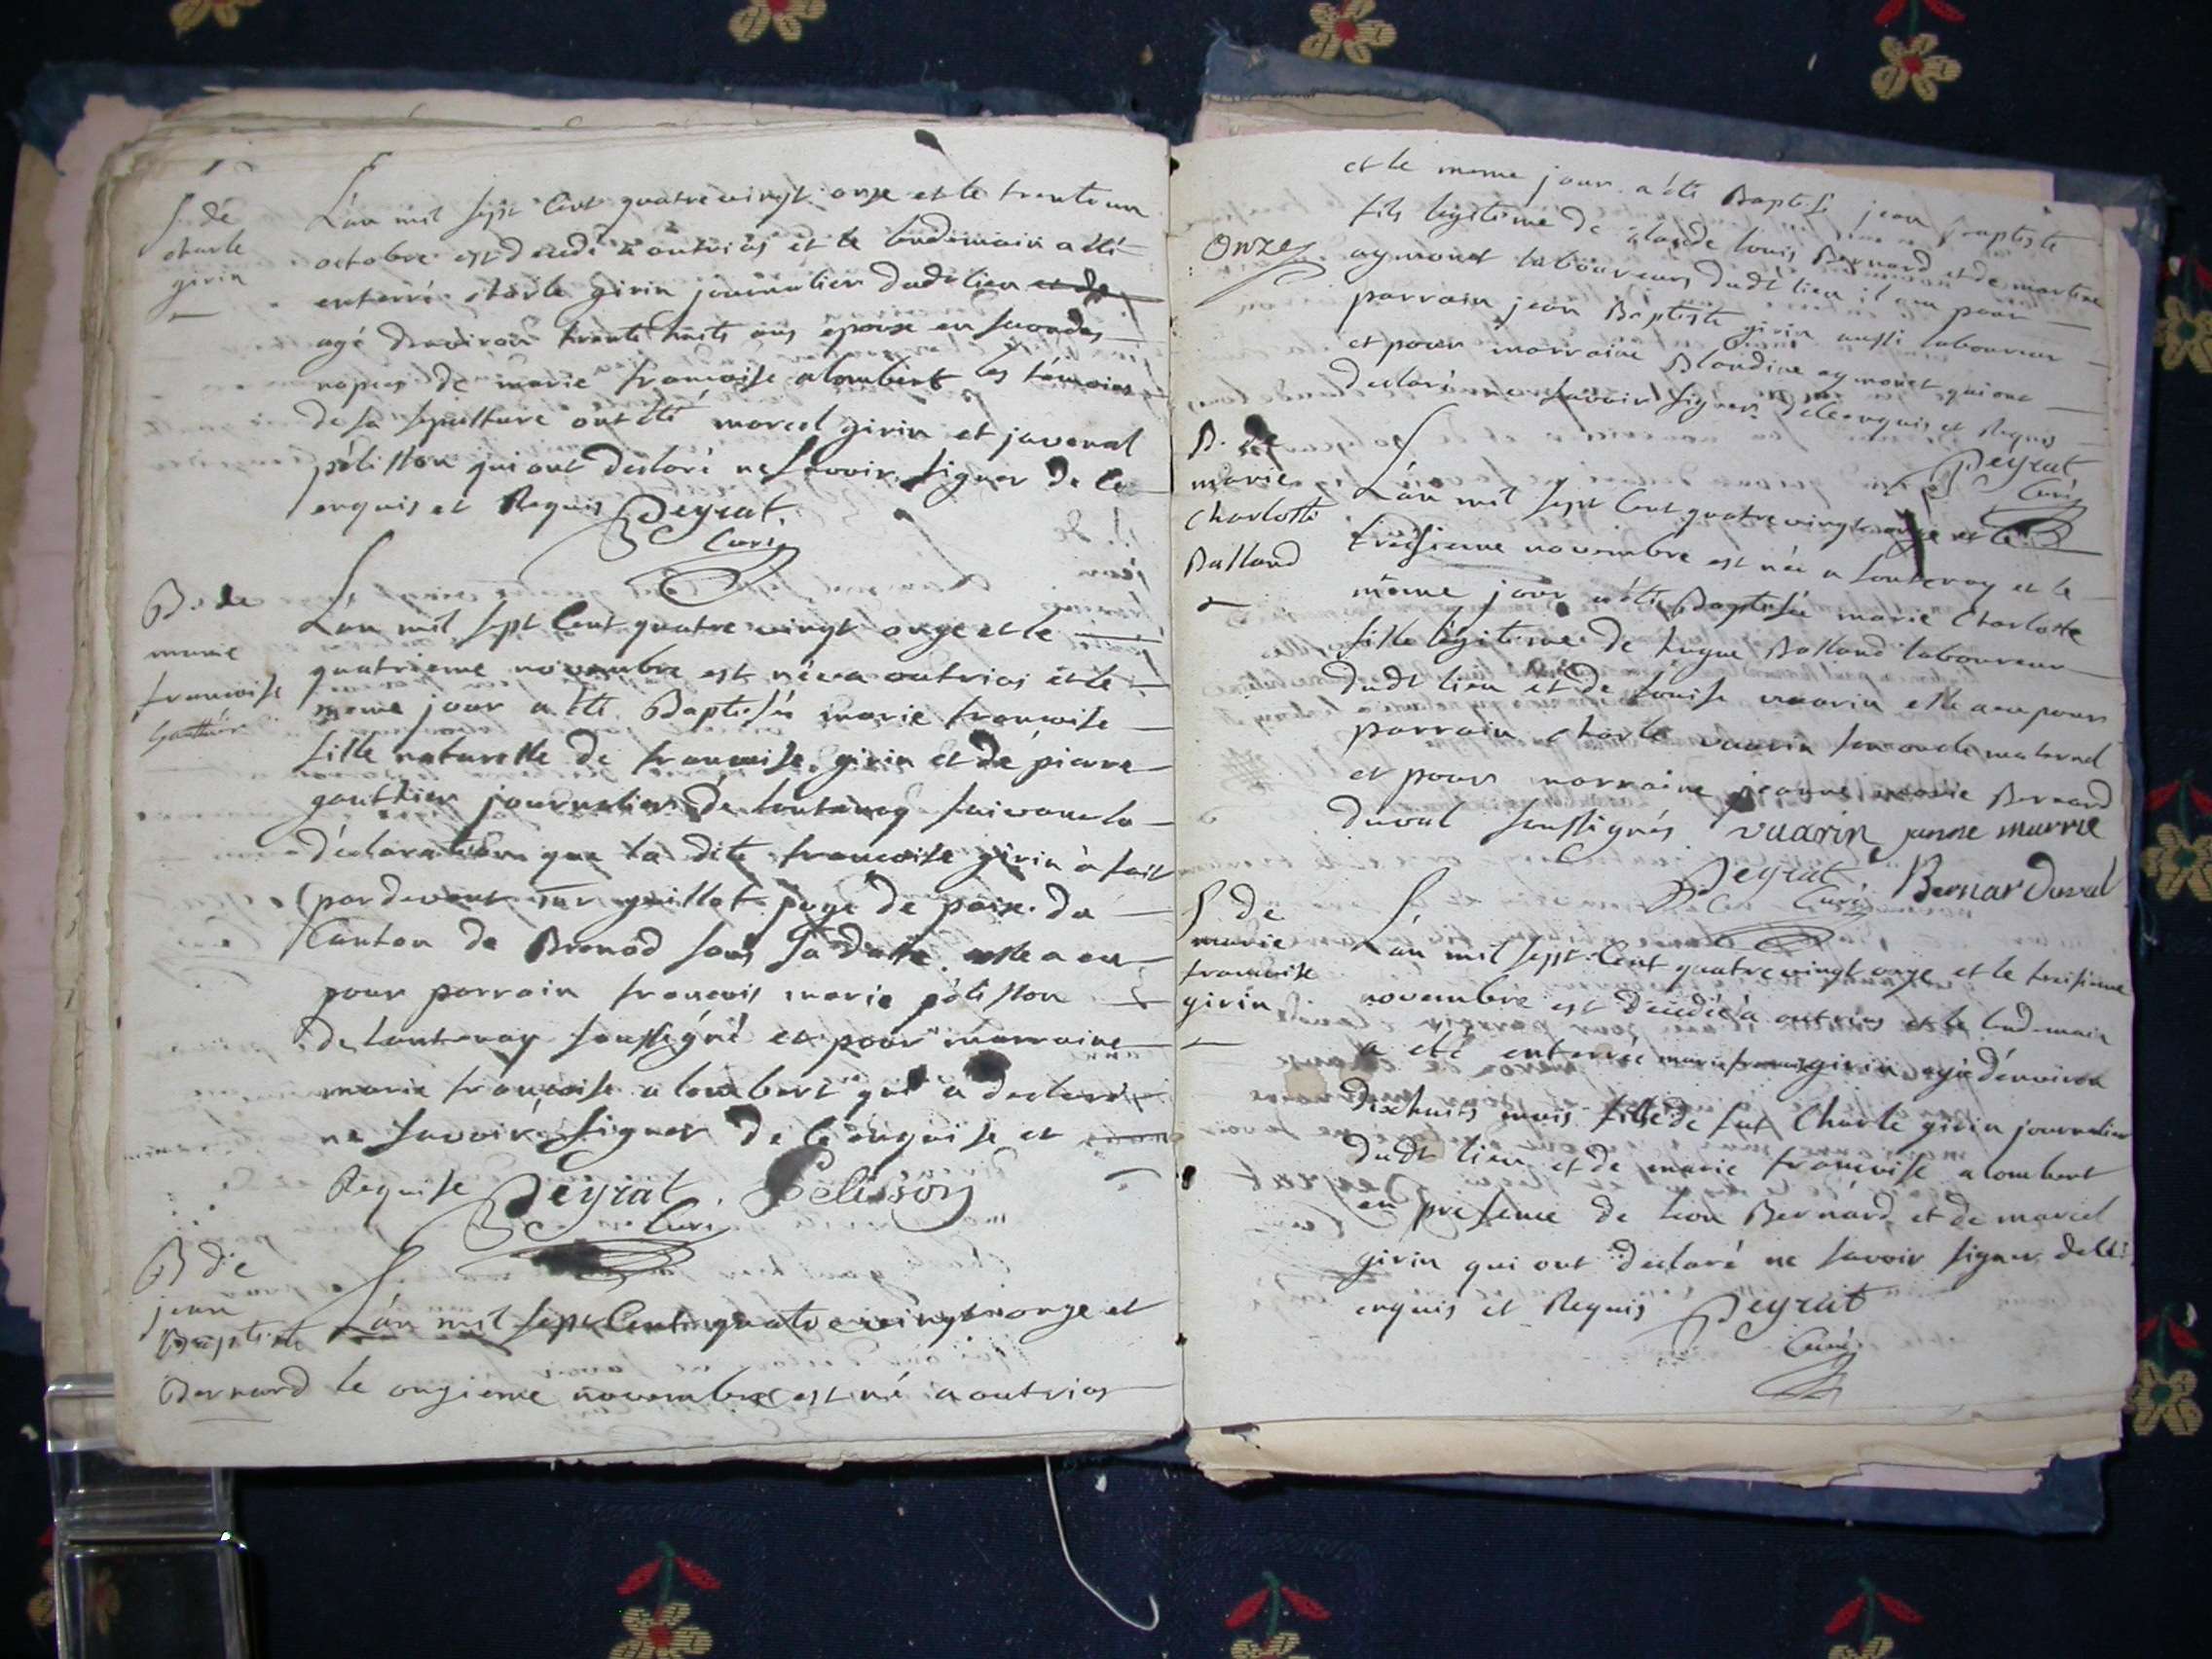 S. de
charle
girin
L'an mil sept Cent quatre vingt onze et le trente un
octobre est decedé a outrias et le lendemain a été
enterré charle girin journalier dudt lieu et de
agé denviron trente huits ans epoux en secondes
nopces de marie francoise alombert les témoins
de sa sepulture ont été marcel girin et juvenal
pélisson qui ont declaré ne savoir signer de ce
enquis et Requis Peyrat
Curé
B. de
marie
francoise
Gauthier
L'an mil sept Cent quatre vingt onze et le
quatrieme novembre est née a outrias et le
meme jour a été Baptisée marie francoise
fille naturelle de francoise girin et de pierre
gauthier journalier de lantenay suivant la
déclaration que la dite francoise girin à fait
pardevant sur guillot juge de paix du
Canton de Brenod sous sa date elle a eu
pour parrain francois marie pélisson
de lantenay soussigné et pour marraine
marie francoise alombert qui a declaré
ne savoir signer de ce enquise et
Requise Peyrat Pelisson
Curé
B de
jean
Baptiste
Bernard
L'an mil sept Cent quatre vingt onze et
le onzieme novembre est né a outrias
et le meme jour a été Baptisé jean Baptiste
fils legitime de claude louis Bernard et de martine
Onze
aymonet laboureurs dudt lieu il a eu pour
parrain jean Baptiste girin aussi laboureur
et pour marraine Blandine aymonet qui ont
declaré ne savoir signer de ce enquis et Requis
Peyrat
Curé
B. de
marie
Charlotte
Balland
L'an mil sept Cent quatre vingt onze et le
treisieme novembre est née a lantenay et le
même jour a été Baptisée marie Charlotte
fille légitime de hugue Balland laboureur
dudt lieu et de louise vuarin elle a eu pour
parrain charle vuarin son oncle maternel
et pour marraine jeanne marie Bernard
duval soussignés vuarin janne marrie
Peyrat Curé Bernar Duval
S. de
marie
francoise
girin
L'an mil sept Cent quatre vingt onze et le treisieme
novembre est decedée à outrias et le lendemain
a été enterrée marie francoise girin agée d'environ
dixhuits mois fille de fut Charle girin journalier
dudt lieu et de marie francoise alombert
en presence de leon Bernard et de marcel
girin qui ont declaré ne savoir signer de ce
enquis et Requis Peyrat
Curé